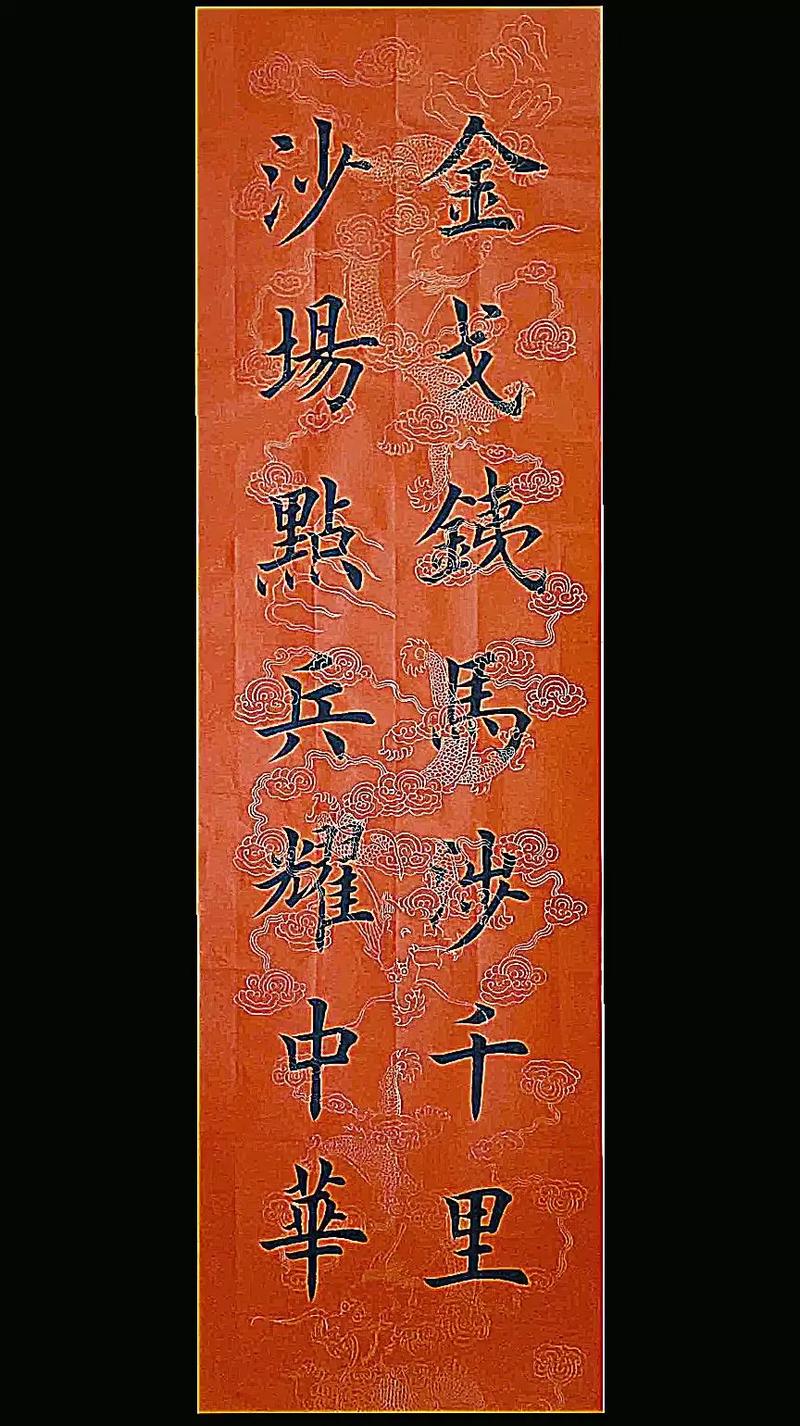 金戈銕馬涉千里
沙場點兵耀中華